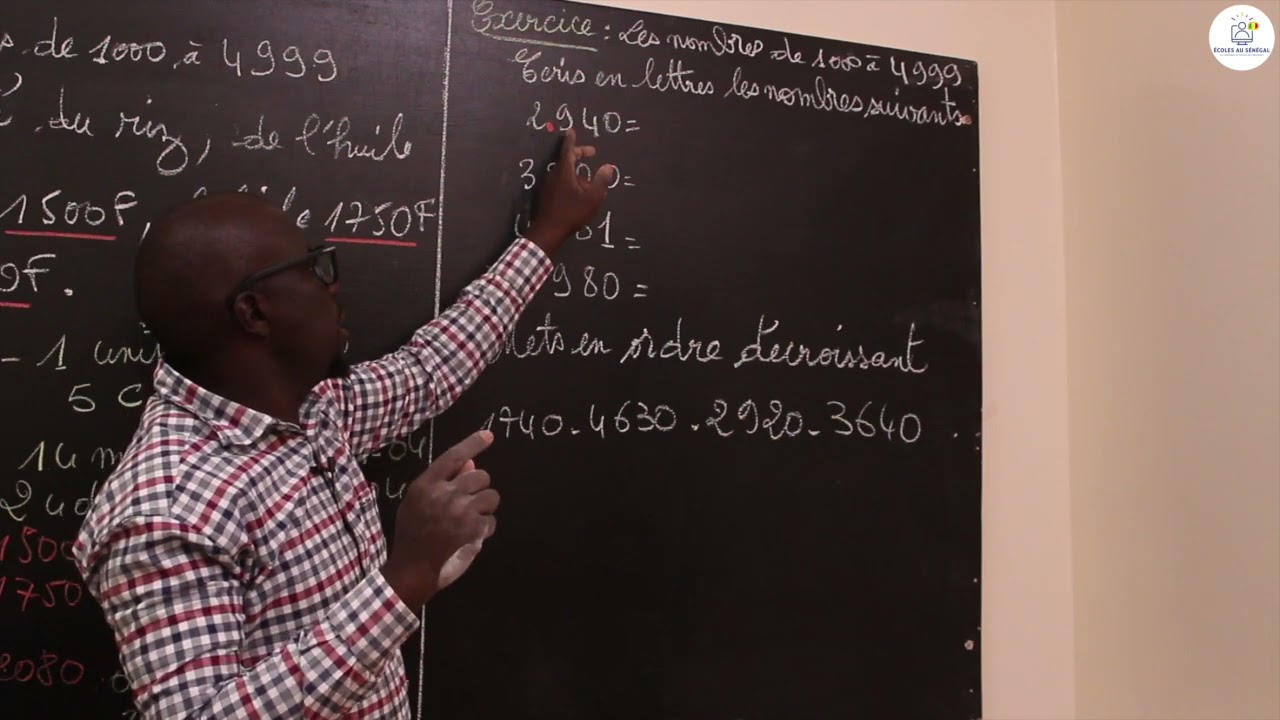 de 1000 à 4999
du riz, de l'huile
1500F, 1750F
9F.
- 1 uni
5 C
14 m
2 ud
1500
1750
2080
Exercice : Les nombres de 1000 à 4999
Ecris en lettres les nombres suivants.
2.940=
3 0=
1=
980=
Mets en ordre décroissant
1740 - 4630 . 2920 - 3640
ÉCOLES AU SÉNÉGAL